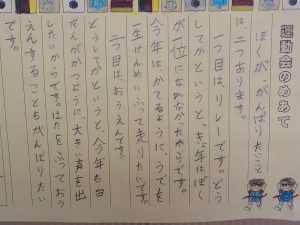 運動会のめあて
ぼくが、がんばりたいこと
は、二つあります。
一つ目は、リレーです。どう
してかというと、きょ年はぼく
が一位になれなかったからです。
今年はかてるように、うでを
一生けんめいふって走りたいです。
二つ目は、おうえんです。
どうしてかというと、今年も白
だんがかつように、大きい声を出
したいからです。はたをふっておう
えんすることもがんばりたい
です。